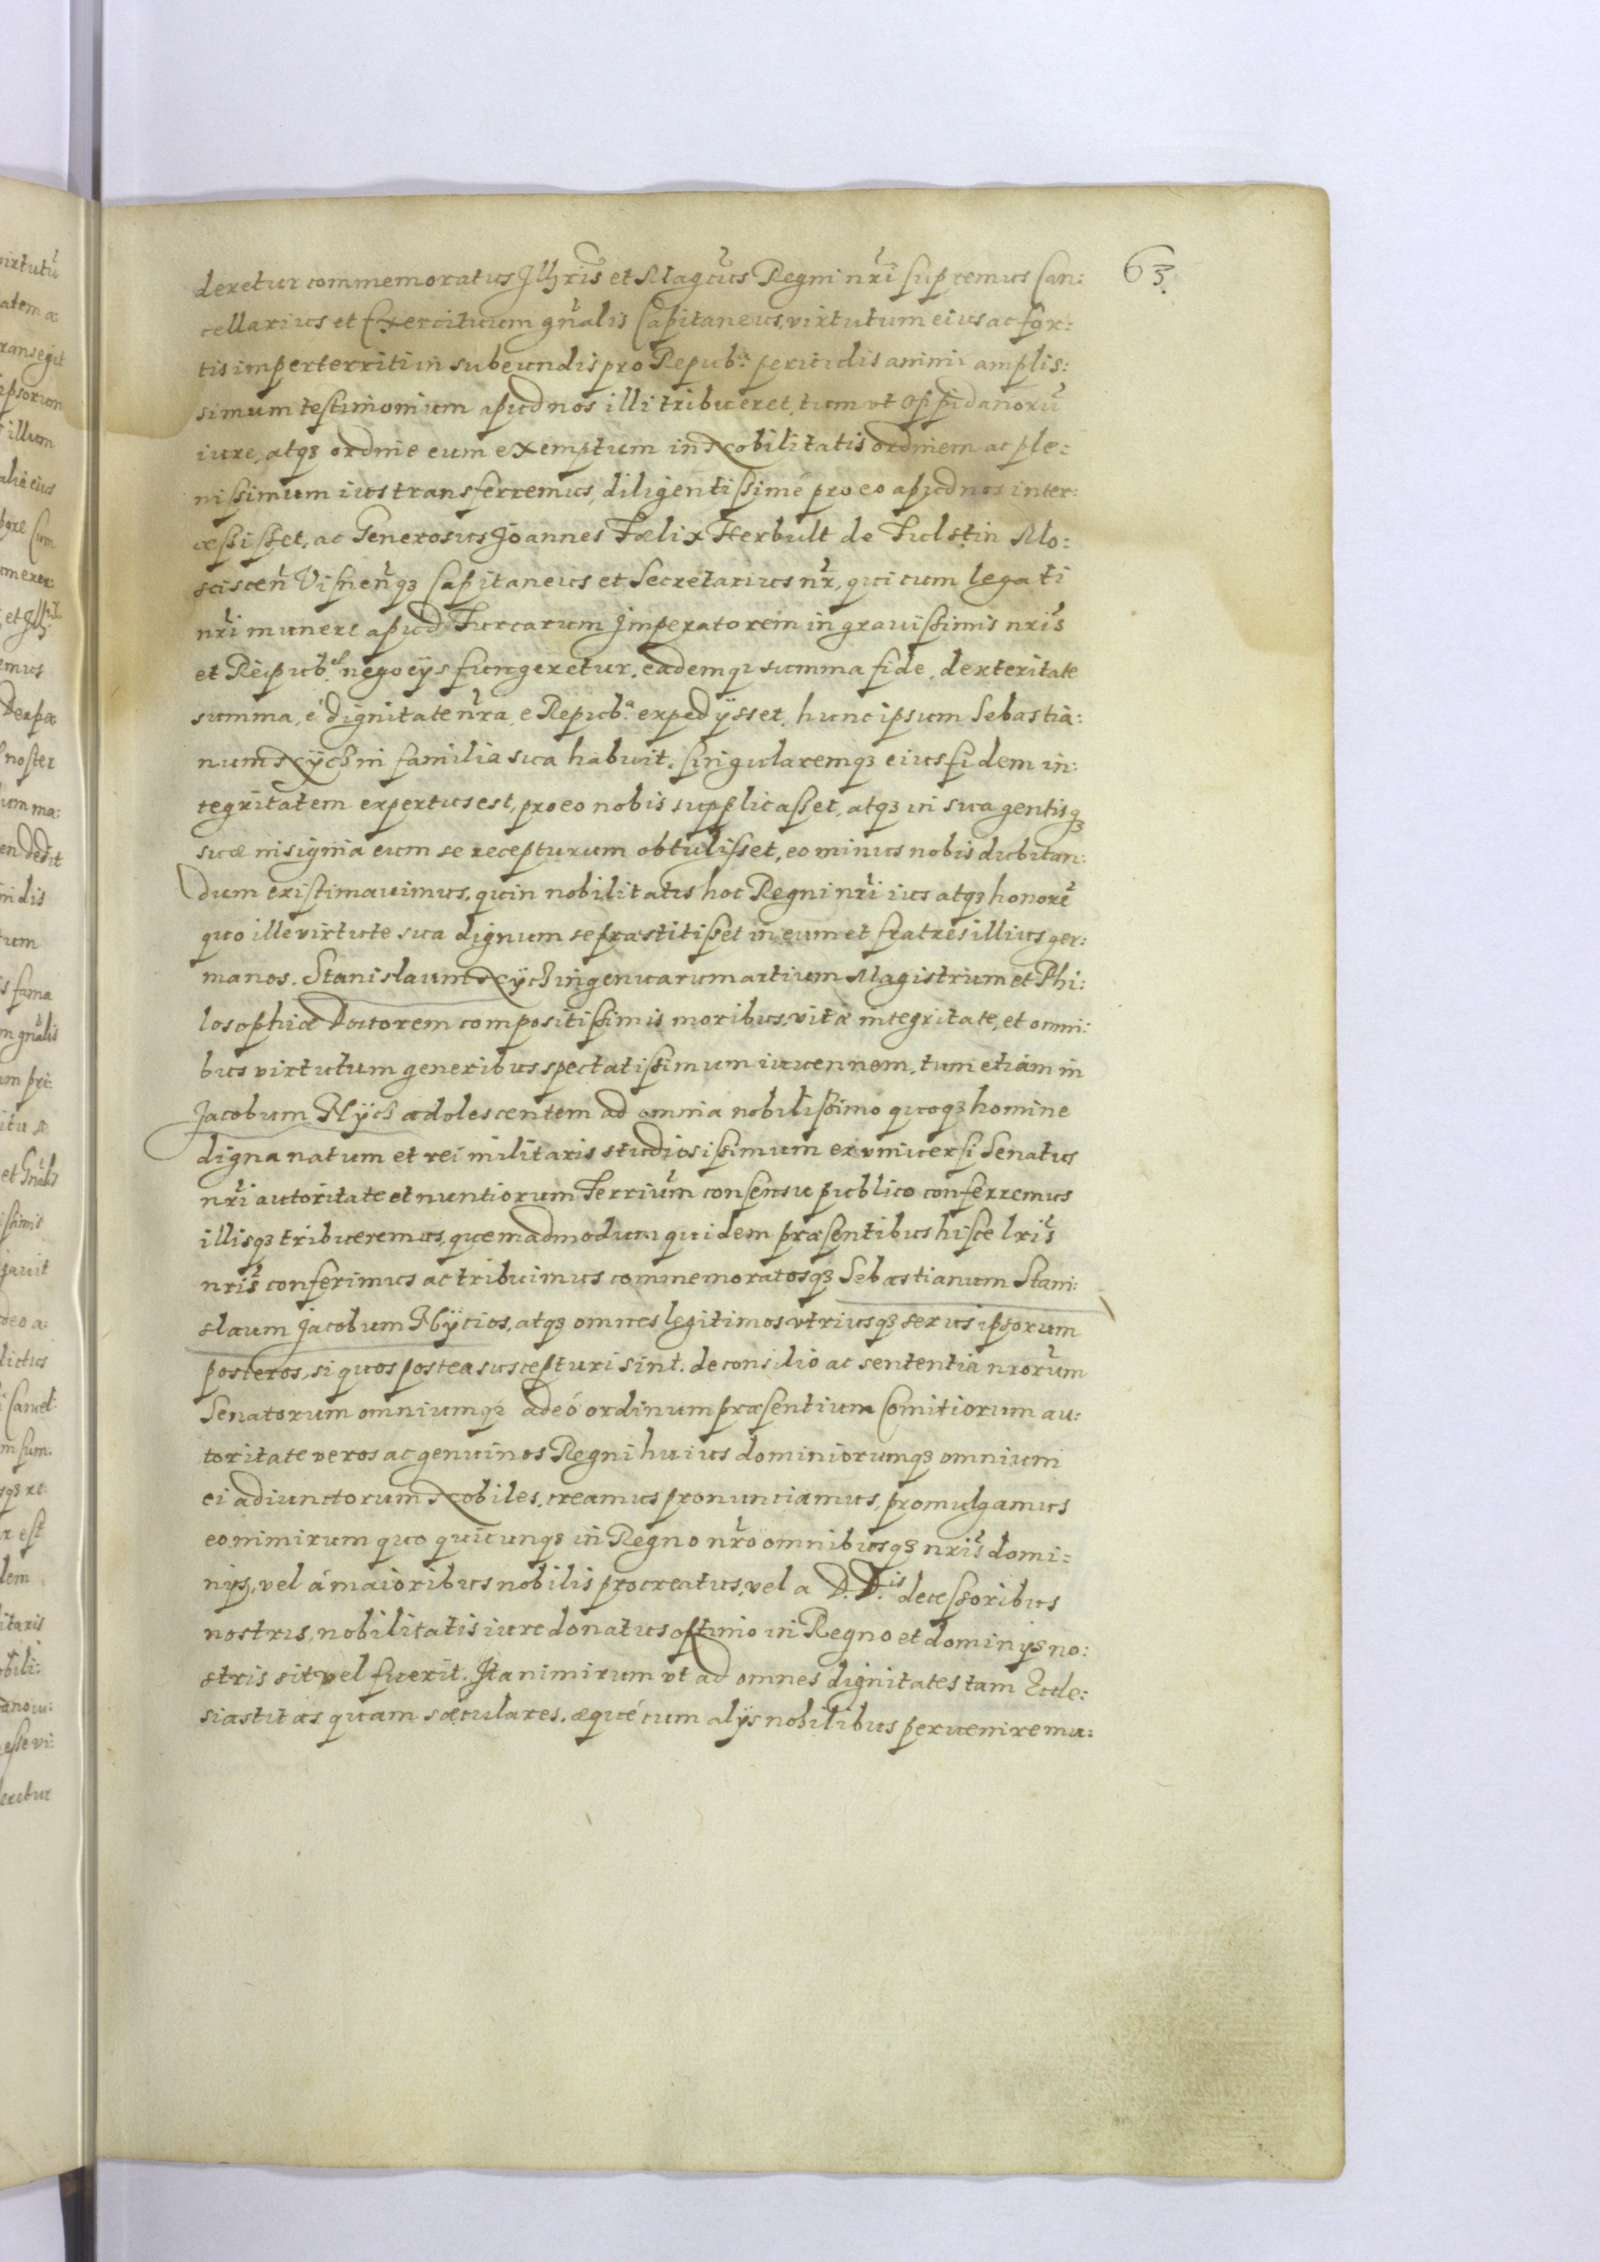 63.
deretur commemoratus Jllris et Magcus Regni nri supremus Can:
cellarius et Exercituum gnalis Capitaneus, virtutum eius ac for:
tis imperterriti in subeundis pro Repuba periculis animi amplis:
simum testimonium apud nos illi tribueret, tum vt oppidanoru
iure, atq3 ordine eum exemptum in Nobilitatis ordinem ac ple:
nissimum ius transferremus, diligentissimé pro eo apud nos inter:
cessisset, ac Generosus Joannes Fælix Herbult de Fulstin Mo:
sciscen Visnenq3 Capitaneus et Secretarius nr, qui cum legati
nri munere apud Turcarum Jmperatorem in gravissimis nris
et Reipub. negocÿs fungeretur, eademq3 summa fide, dexteritate
summa, é dignitate nra, e Repuba expedÿsset, hunc ipsum Sebastia:
num Nÿch in familia sua habuit, singularemq3 eius fidem in:
tegritatem expertus est, pro eo nobis supplicasset, atq3 in sua gentisq3
suæ insignia eum se recepturum obtulisset, eo minus nobis dubitan:
dum existimauimus, quin nobilitatis hoc Regni nri ius atq3 honore
quo ille virtute sua dignum se præstitisset in eum et fratres illius ger:
manos. Stanislaum Nÿch ingenuarum artium Magistrum et Phi:
losophiæ Doctorem compositissimis moribus, vitæ integritate, et omni:
bus virtutum generibus spectatissimum iuuennem, tum etiam in
Jacobum Nÿch adolescentem ad omnia nobilissimo quoq3 homine
digna natum et rei militaris studiosissimum ex vniuersi Senatus
nri autoritate et nuntiorum Terrium consensu publico conferremus
illisq3 tribueremus, quemadmodum quidem præsentibus hisce lris
nris conferimus ac tribuimus commemoratosq3 Sebastianum Stani:
slaum Jacobum Nÿcios, atq3 omnes legitimos vtriusq3 sexus ipsorum
posteros, si quos postea suscepturi sint, de consilio ac sententia nrorum
Senatorum omniumq3 adeó ordinum præsentium Comitiorum au:
toritate veros ac genuinos Regni huius dominiorumq3 omnium
ei adiunctorum Nobiles, creamus pronunciamus, promulgamus
eo nimirum quo quicunq3 in Regno nro omnibusq3 nris domi:
nÿs, vel á maioribus nobilis procreatus, vel a D. D.is decessoribus
nostris, nobilitatis iure donatus optimo in Regno et dominÿs no:
stris sit vel fuerit. Jta nimirum vt ad omnes dignitates tam Eccle:
siasticas quam sæculares, æqué cum alÿs nobilibus peruenire mu: